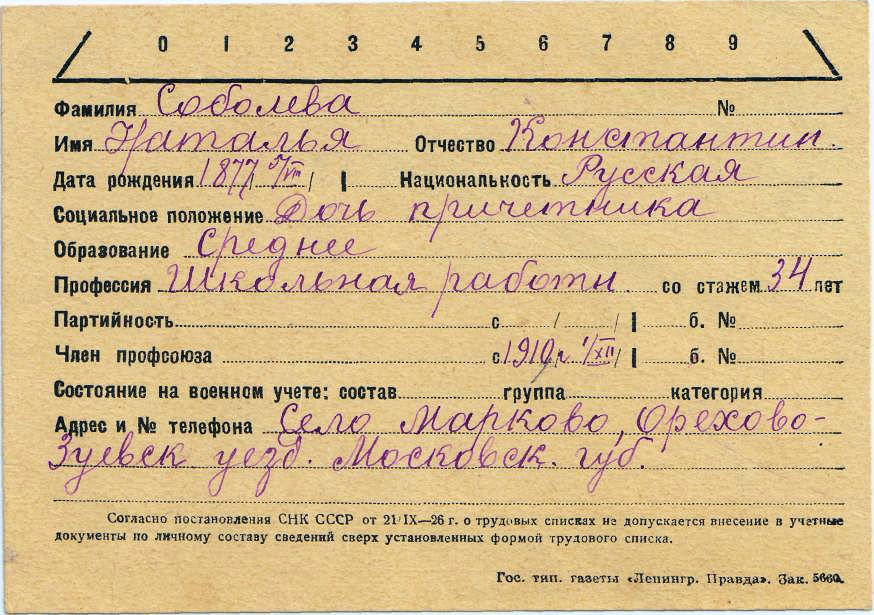 0 1 2 3 4 5 6 7 8 9
Фамилия Соболева №
Имя Наталья Отчество Константин.
Дата рождения 1877 5/VIII Национальность Русская
Социальное положение Дочь причетника
Образование среднее
Профессия Школьная работн. со стажем 34 лет
Партийность с / / б. №
Член профсоюза с 1919 г. 1/XII б. №
Состояние на военном учете: состав группа категория
Адрес и № телефона Село Марково, Орехово-
Зуевск уезд. Московск. губ.
Согласно постановления СНК СССР от 21/IX—26 г. о трудовых списках не допускается внесение в учетные
документы по личному составу сведений сверх установленных формой трудового списка.
Гос. тип. газеты «Ленингр. Правда». Зак. 5660.